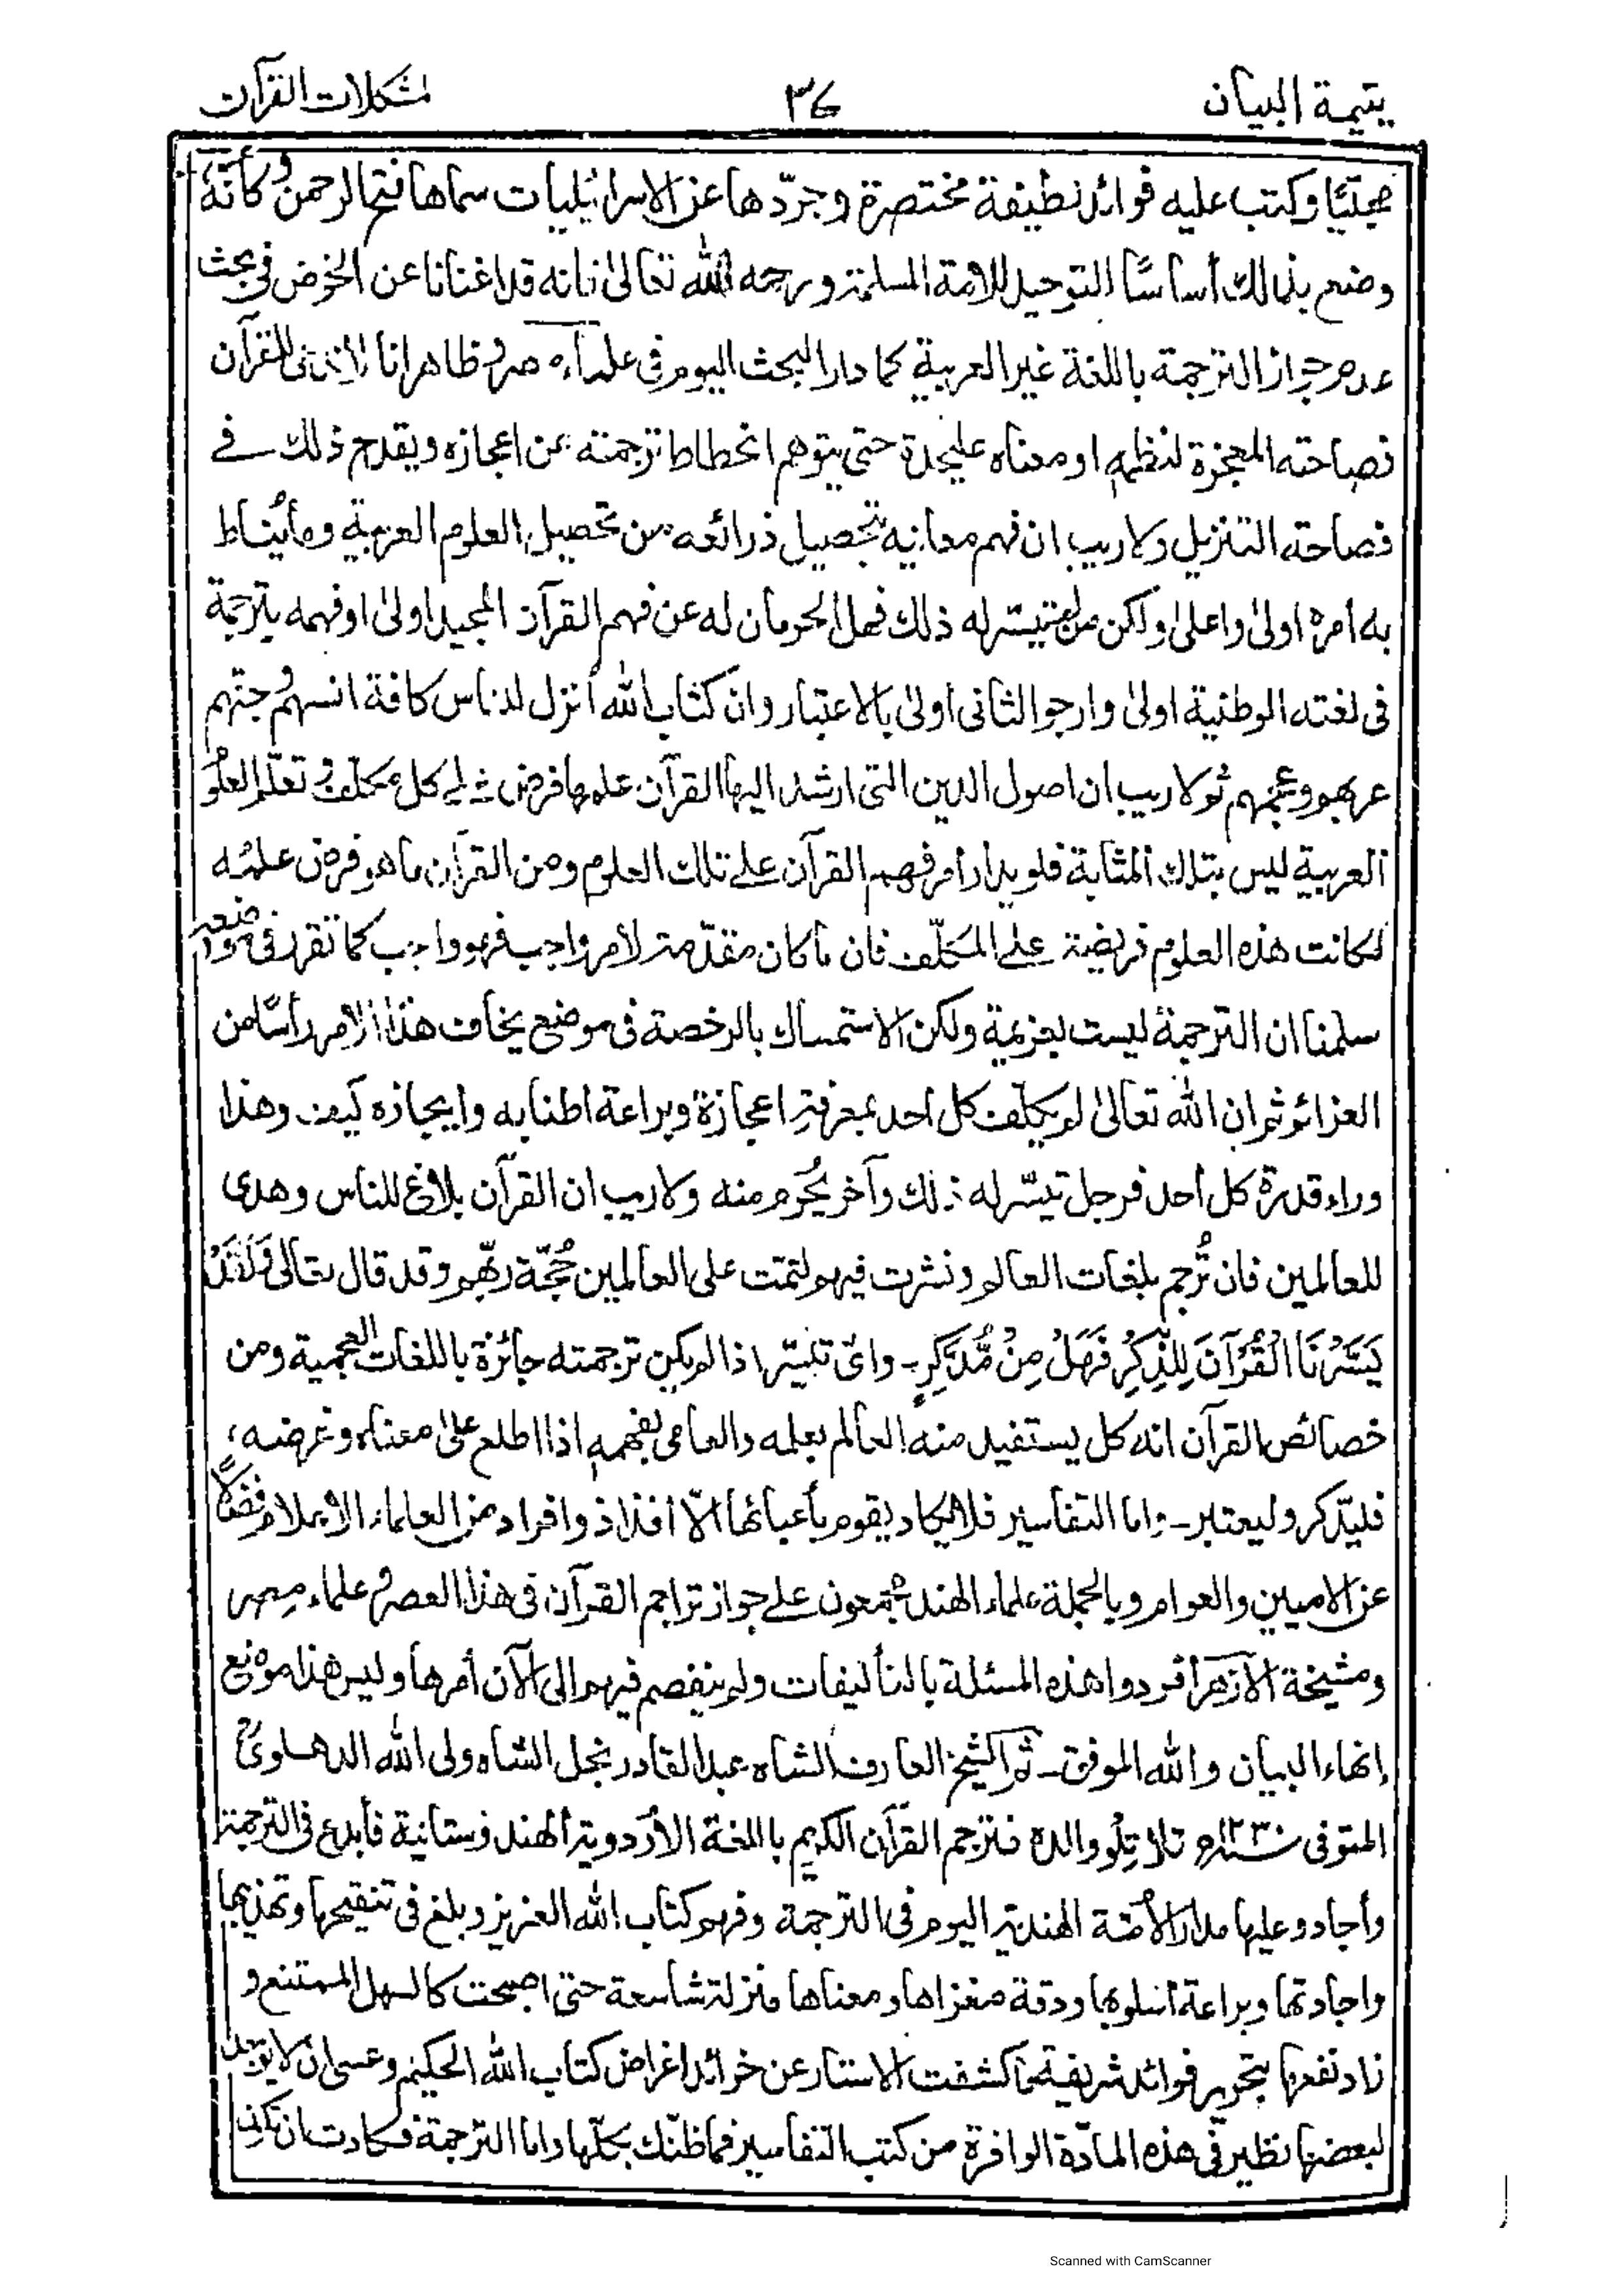 يتيمة البيان
٣٤
مشكلات القرآن
وكتب عليه فوائد نظيفة مختصرة وجرّدها عن الاسرائيليات سماها فتح الرحمن وكأنه
وضع بذالك أساسًا التوحيد للامة المسلمة ورحمه الله تعالىٰ فانه قد اغنانا عن الخوض فى بحث
عدم جواز الترجمة باللغة غير العربية كما دار البحث اليوم فى علماء مصر وظاهر انا لا للقرآن
فصاحته المعجزة لنظمه او معناه عليحدة حتى يتوهم انحطاط ترجمته عن اعجازه ويقدح ذلك فى
فصاحته التنزيل ولا ريب ان فهم معانيه بتحصيل ذرائعه من تحصيل العلوم العربية وما يُناط
به أمره اولىٰ واعلىٰ ولكن من لم يتيسّر له ذلك فهل الحرمان له عن فهم القرآن المجيد اولىٰ او فهمه بترجمة
فى لغته الوطنية اولىٰ وارجو الثانى اولىٰ بالاعتبار وان كتاب الله أنزل للناس كافة انسهم وجنهم
عربهم وعجمهم ثم لا ريب ان اصول الدين التى ارشد اليها القرآن علمها فرض على كل مكلف وتعلّم العلوم
العربية ليس بتلك المثابة فلو يدار أمر فهم القرآن على تلك العلوم ومن القرآن ما هو فرض علمُه
لكانت هذه العلوم فريضة على المكلّف فان ما كان مقدّمة لامر واجب فهو واجب كما تقرر فى موضعه
سلمنا ان الترجمة ليست بعزيمة ولكن الاستمساك بالرخصة فى موضع يخاف هذا الامر رأسًا من
العزائم ثم ان الله تعالىٰ لم يكلّف كل أحد بمعرفة اعجازه وبراعة اطنابه وايجازه كيف وهذا
وراء قدرة كل أحد فرجل تيسّر له ذلك وآخر يُحرم منه ولا ريب ان القرآن بلاغ للناس وهدى
للعالمين فان تُرجم بلغات العالم ونشرت فيهم لتمت على العالمين حُجّة ربّهم وقد قال تعالىٰ وَلَقَدْ
يَسَّرْنَا الْقُرْآنَ لِلذِّكْرِ فَهَلْ مِنْ مُّدَّكِرٍ ـ واىّ تيسّر اذا لم يكن ترجمته جائزة باللغات العجمية ومن
خصائص القرآن انه كل يستفيد منه العالم بعلمه والعامى بفهمه اذا اطلع على معناه وغرضه،
فليدّكر وليعتبر ـ واما التفاسير فلا يكاد يقوم بأعبائها الّا أفذاذ وافراد من العلماء الاعلام فضلًا
عن الاميين والعوام وبالجملة علماء الهند مجمعون على جواز تراجم القرآن فى هذا العصر وعلماء مصر
ومشيخة الأزهر أفردوا هذه المسئلة بالتأليفات ولم ينفصم فيهم الى الآن أمرها وليس هذا موضع
إنهاء البيان والله الموفق ـ ثم الشيخ العارف الشاه عبد القادر نجل الشاه ولى الله الدهلوىؒ
المتوفى سنة ١٢٣٠هـ تلا تِلْو والده فترجم القرآن الكريم باللغة الأردوية الهندوستانية فأبدع فى الترجمة
وأجاد وعليها مدار الأمّة الهندية اليوم فى الترجمة وفهم كتاب الله العزيز وبلغ فى تنقيحها وتهذيبها
واجادتها وبراعة أسلوبها ودقة مغزاها ومعناها منزلة شاسعة حتى اصبحت كالسهل الممتنع و
زاد نفعها بتحرير فوائد شريفة كشفت الاستار عن خرائد اغراض كتاب الله الحكيم وعسى ان لا يوجد
لبعضها نظير فى هذه المادّة الوافرة من كتب التفاسير فما ظنّك بكلّها واما الترجمة فكادت ان تكون
Scanned with CamScanner